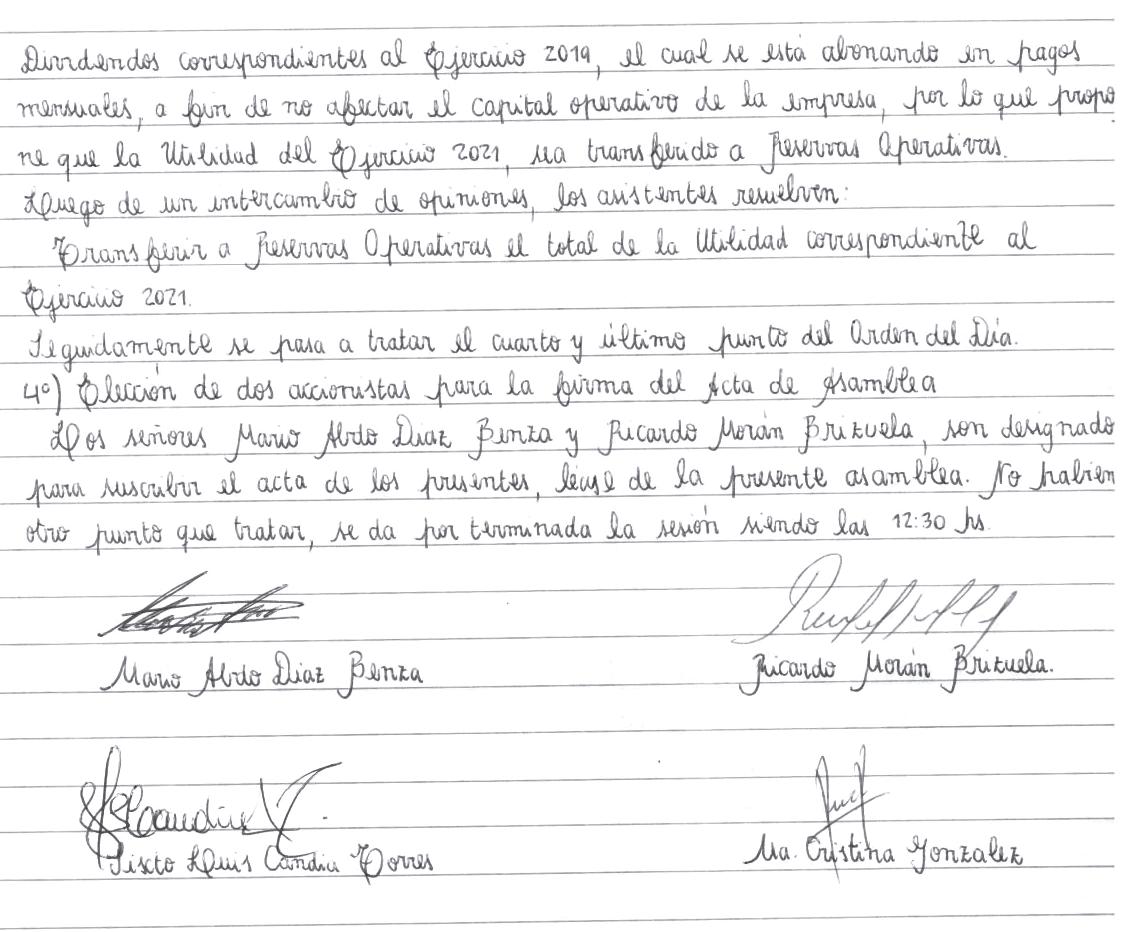 Dividendos correspondientes al Ejercicio 2019, el cual se está abonando en pagos
mensuales, a fin de no afectar el capital operativo de la empresa, por lo que propo
ne que la Utilidad del Ejercicio 2021, sea transferido a Reservas Operativas.
Luego de un intercambio de opiniones, los asistentes resuelven:
Transferir a Reservas Operativas el total de la Utilidad correspondiente al
Ejercicio 2021.
Seguidamente se pasa a tratar el cuarto y último punto del Orden del Día.
4º) Elección de dos accionistas para la firma del Acta de Asamblea
Los señores Mario Abdo Diaz Benza y Ricardo Morán Brizuela, son designado
para suscribir el acta de los presentes, léase de la presente asamblea. No habien
otro punto que tratar, se da por terminada la sesión siendo las 12:30 hs.
Mario Abdo Diaz Benza Ricardo Morán Brizuela.
Sixto Luis Candia Torres Ma. Cristina Gonzalez